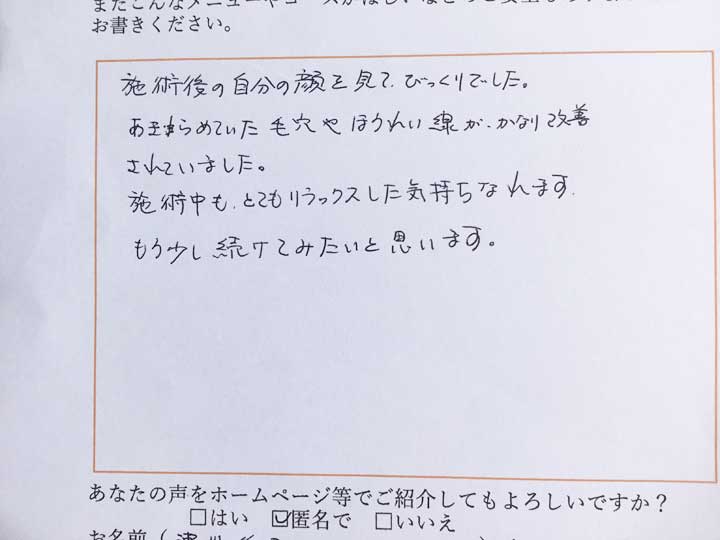 お書きください。
施術後の自分の顔を見て、びっくりでした。
あきらめていた毛穴やほうれい線が、かなり改善
されていました。
施術中も、とてもリラックスした気持ちなれます。
もう少し続けてみたいと思います。
あなたの声をホームページ等でご紹介してもよろしいですか？
□はい ☑匿名で □いいえ
お名前（